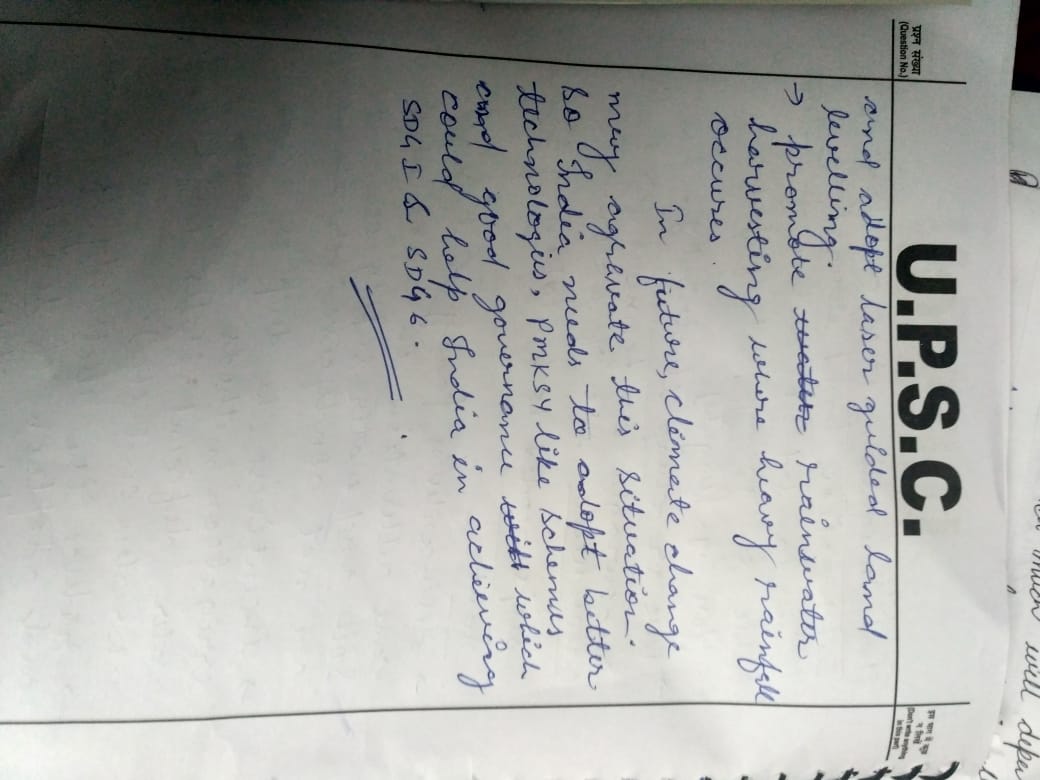 प्रश्न संख्या
(Question No.)
U.P.S.C.
इस भाग में कुछ
न लिखें
(Don't write anything
in this part)
and adopt laser guided land
levelling.
→ promote rainwater
harvesting where heavy rainfall
occures.
In future, climate change
may agravate this situation.
So India needs to adopt better
technologies, PMKSY like schemes
and good governance which
could help India in achieving
SDG I & SDG 6.
will depe